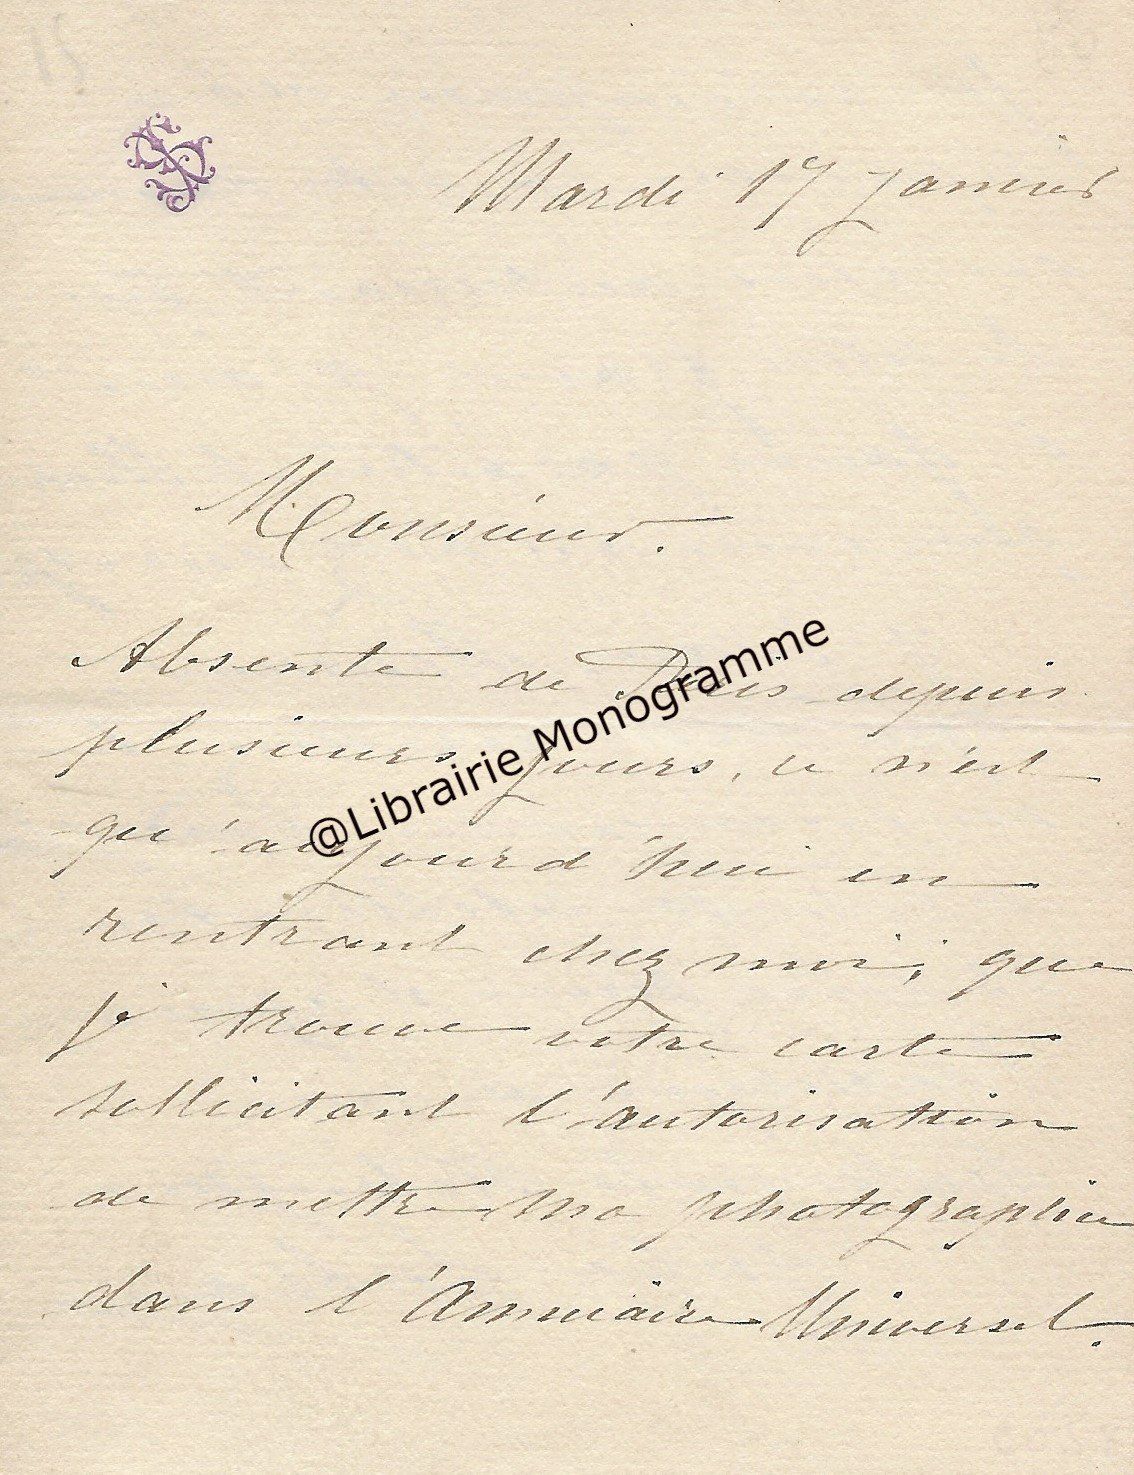 Mardi 17 Janvier
Monsieur.
Absente de Paris depuis
plusieurs jours, ce n'est
qu'aujourd'hui en
rentrant chez moi, que
je trouve votre carte
sollicitant l'autorisation
de mettre ma photographie
dans l'Annuaire Universel.
@Librairie Monogramme